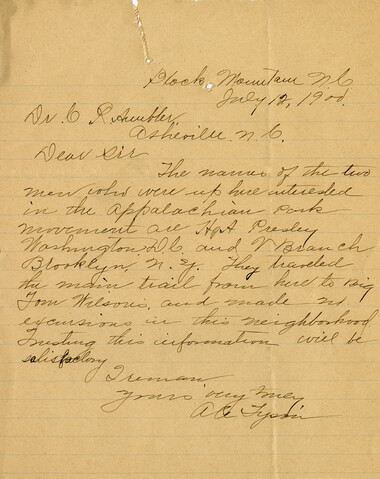 Black Mountain N.C.
July 12, 1900.
Dr. C. P. Ambler,
Asheville, N. C.
Dear Sir
The names of the two
men who were up here interested
in the Appalachian Park
movement are Presley
Washington D.C. and Branch
Brooklyn, N. Y. They traveled
the main trail from here to Big
Tom Wilsons, and made no
excursions in this neighborhood
Trusting this information will be
satisfactory
I remain
Yours very truly
Tyson